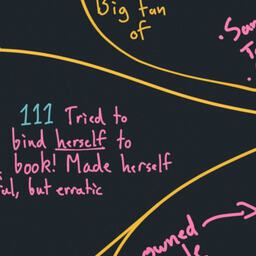 Big fan
of
111 Tried to
bind herself to
book! Made herself
but erratic
owned